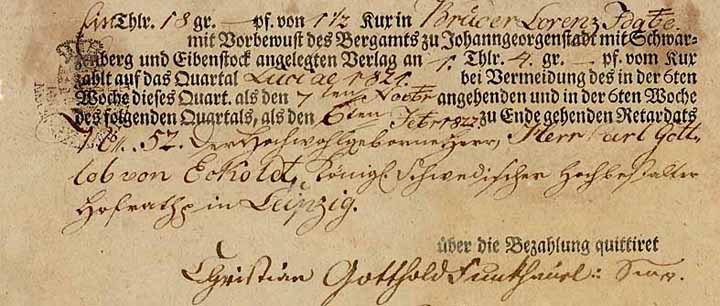 Ein Thlr. 18 gr. — pf. von 1 1/2 Kux in Brüder Lorenz Fdgbe.
mit Vorbewust des Bergamts zu Johanngeorgenstadt mit Schwar-
zenberg und Eibenstock angelegten Verlag an 1. Thlr. 4. gr. — pf. vom Kux
zahlt auf das Quartal Luciae 1821. bei Vermeidung des in der 6ten
Woche dieses Quart. als den 7ten angehenden und in der 6ten Woche
des folgenden Quartals, als den 6ten Febr 1822. zu Ende gehenden Retardats
52. Der Hochwohlgeborne Herr, Herr Carl Gott
lob von Eckoldt, Königl. Schwedischer Hochbestalter
Hofrath in Leipzig.
über die Bezahlung quittiret
Christian Gotthold